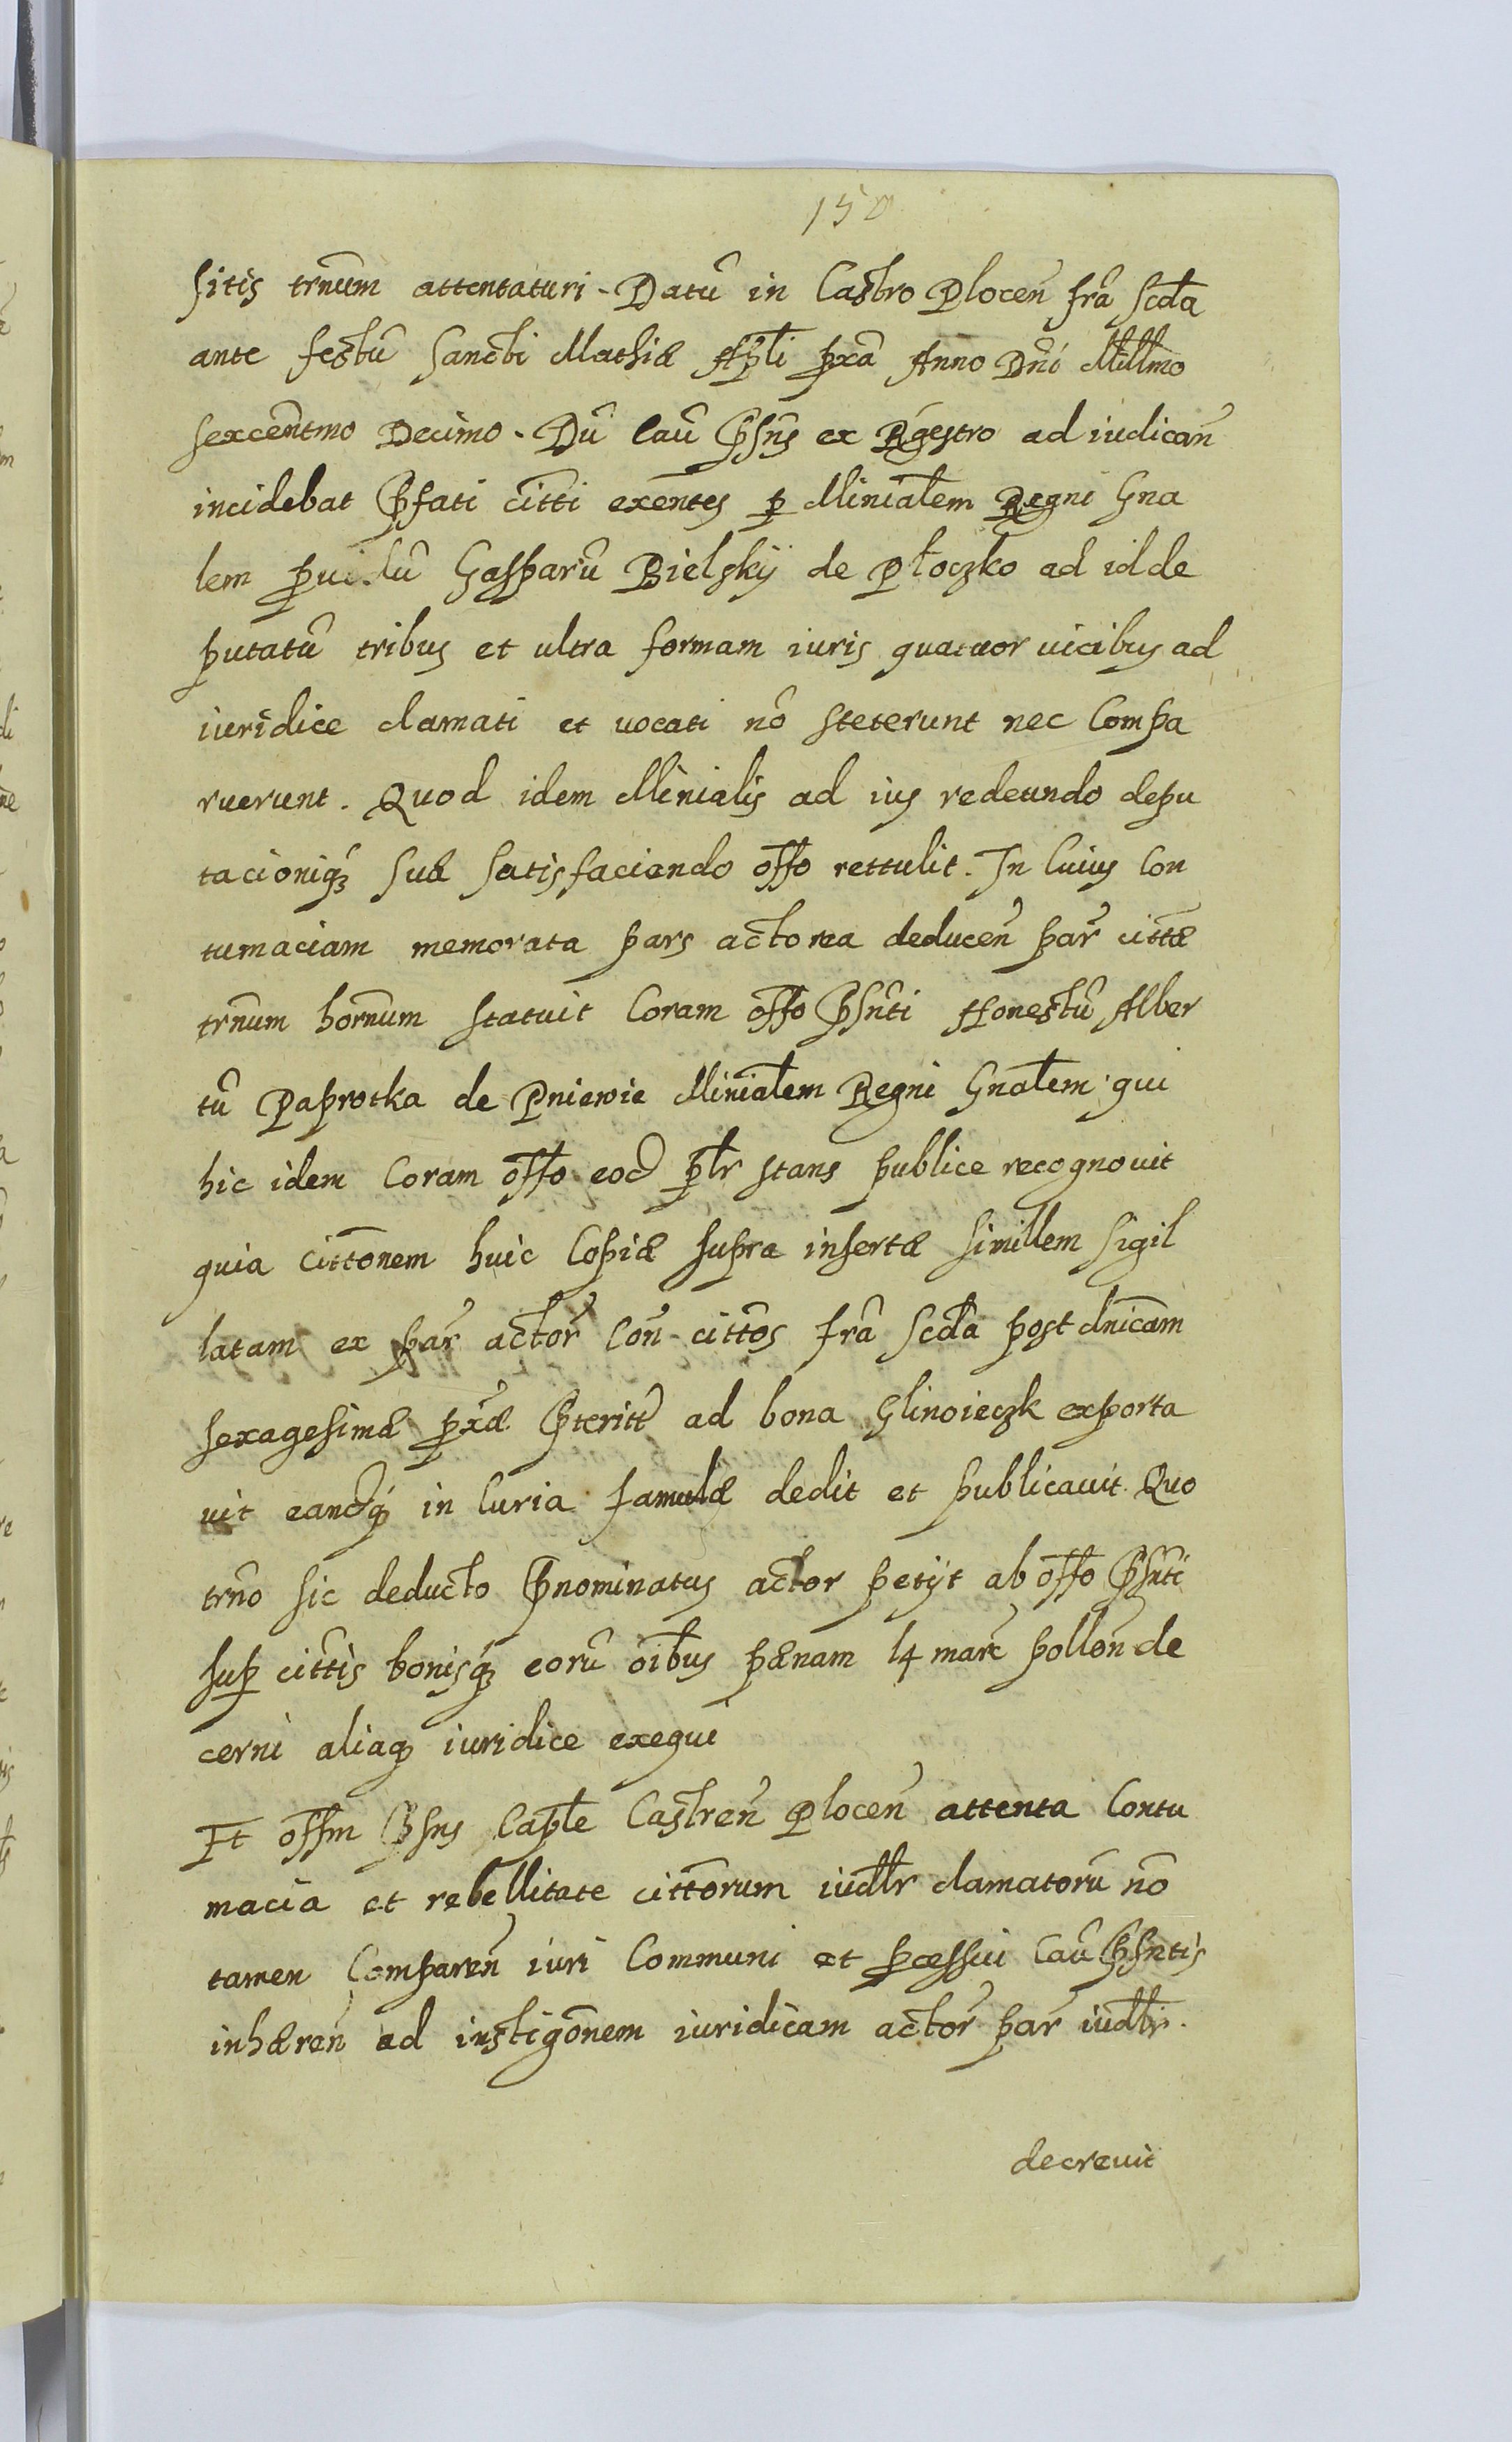 150
sitis trnum attentaturi. Datū in Castro Plocen̄ fr̄a Scd̄a
ante festū Sancti Mathiæ Apl̄i px̄a Anno Dn̄i Mill̄mo
sexcen̄tmo Decimo. Dū cau̅ Pn̄s ex Regestro ad iudican̄
incidebat Pfati citt̄i exen̄tes p Minial̄em Regni Gna
lem puidū Gasparū Bielskÿ de Płoczko ad id de
putatū tribus et ultra formam iuris quatuor vicibus ad
iuridice clamati et vocati nō steterunt nec Compa
ruerunt. Quod idem Minialis ad ius redeundo depu
tacioniq3 suæ satisfaciendo off̄o rettulit. In Cuius Con
tumaciam memorata pars actorea deducen̄ par̄ citt̄æ
trn̄um horn̄um statuit Coram off̄o Psn̄ti Honestū Alber
tū Paprotka de Pniewie Minial̄em Regni Gnal̄em qui
hic idem Coram off̄o eod̄ pl̄r stans publice recognovit
quia Citt̄onem huic Copiæ supra insertæ simillem sigil
latam ex par̄ actor̄ Con̄ citt̄os fr̄a Scd̄a post dn̄icam
sexagesimæ px̄æ Pteritt̄ ad bona Glinoieczk exporta
vit eand̄q3 in Curia famulæ dedit et publicavit. Quo
trn̄o sic deducto Pnominatus actor petÿt ab off̄o Psn̄ti
sup citt̄is bonisq3 eorū oībus pænam 14 marc̄ pollon̄ de
cerni aliaq3 iuridice exequi
Et off̄m Psn̄s Capl̄e Castren̄ Plocen̄ attenta Contu
macia et rebellitate citt̄orum iudl̄r clamatorū nō
tamen Comparen̄ iuri Communi et pcessui Cau̅ Psn̄tis
inhæren̄ ad instigōnem iuridicam actor̄ par̄ iudl̄r.
decrevit